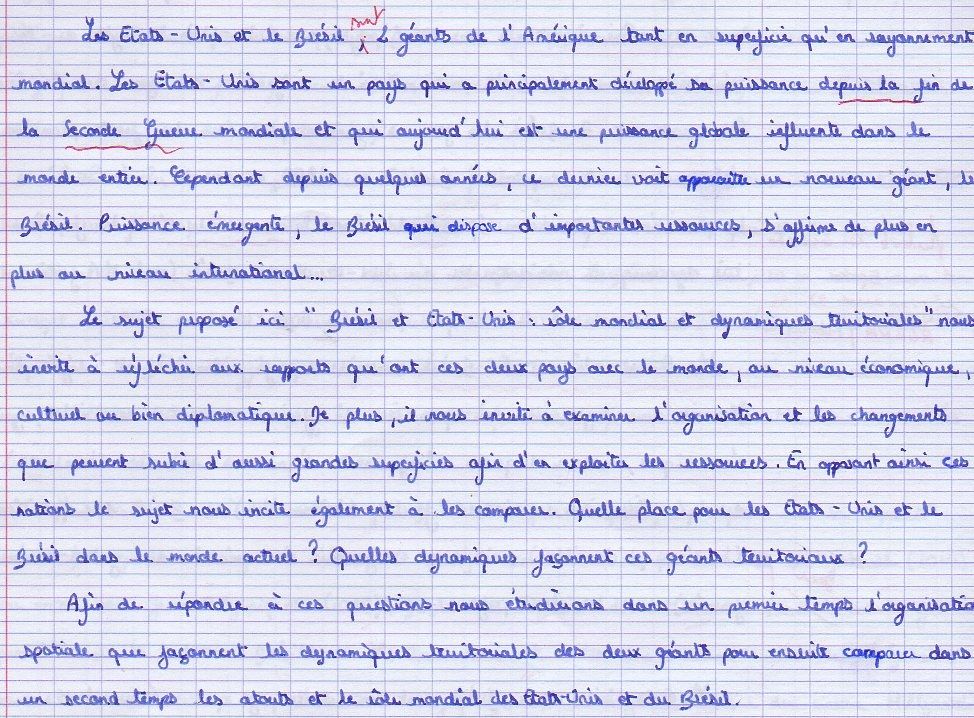 Les Etats-Unis et le Brésil sont 2 géants de l'Amérique tant en superficie qu'en rayonnement
mondial. Les Etats-Unis sont un pays qui a principalement développé sa puissance depuis la fin de
la Seconde Guerre mondiale et qui aujourd'hui est une puissance globale influente dans le
monde entier. Cependant depuis quelques années, ce dernier voit apparaitre un nouveau géant, le
Brésil. Puissance émergente, le Brésil qui dispose d'importantes ressources, s'affirme de plus en
plus au niveau international...
Le sujet proposé ici "Brésil et Etats-Unis : rôle mondial et dynamiques territoriales" nous
invite à réfléchir aux rapports qu'ont ces deux pays avec le monde, au niveau économique,
culturel ou bien diplomatique. De plus, il nous invite à examiner l'organisation et les changements
que peuvent subir d'aussi grandes superficies afin d'en exploiter les ressources. En opposant ainsi ces
nations le sujet nous incite également à les comparer. Quelle place pour les Etats-Unis et le
Brésil dans le monde actuel ? Quelles dynamiques façonnent ces géants territoriaux ?
Afin de répondre à ces questions nous étudierons dans un premier temps l'organisation
spatiale que façonnent les dynamiques territoriales des deux géants pour ensuite comparer dans
un second temps les atouts et le rôle mondial des Etats-Unis et du Brésil.